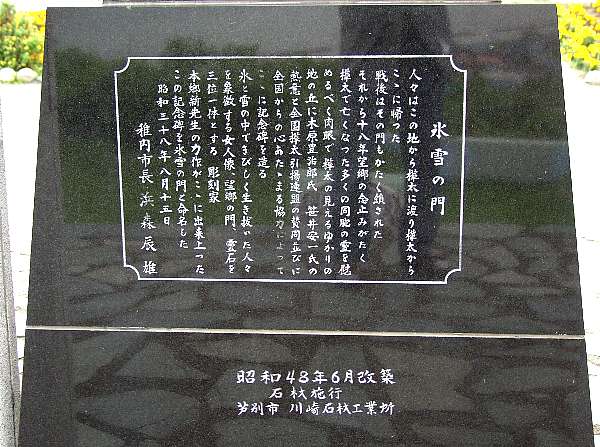 氷雪の門
人々はこの地から樺太に渡り樺太から
ここに帰った
戦後はその門もかたく鎖された
それから十八年望郷の念止みがたく
樺太で亡くなった多くの同胞の霊を慰
めるべく肉眼で樺太の見えるゆかりの
地の丘に木原豊治郎氏 笹井安一氏の
熱意と全国樺太引揚連盟の賛同並びに
全国からの心あたゝまる協力によって
こゝに記念碑を造る
氷と雪の中できびしく生き抜いた人々
を象徴する女人像、望郷の門、霊石を
三位一体とする 彫刻家
本郷新先生の力作がこゝに出来上った
この記念碑を氷雪の門と命名した
昭和三十八年八月十五日
稚内市長 浜森辰雄
昭和48年6月改築
石材施行
芦別市 川崎石材工業所